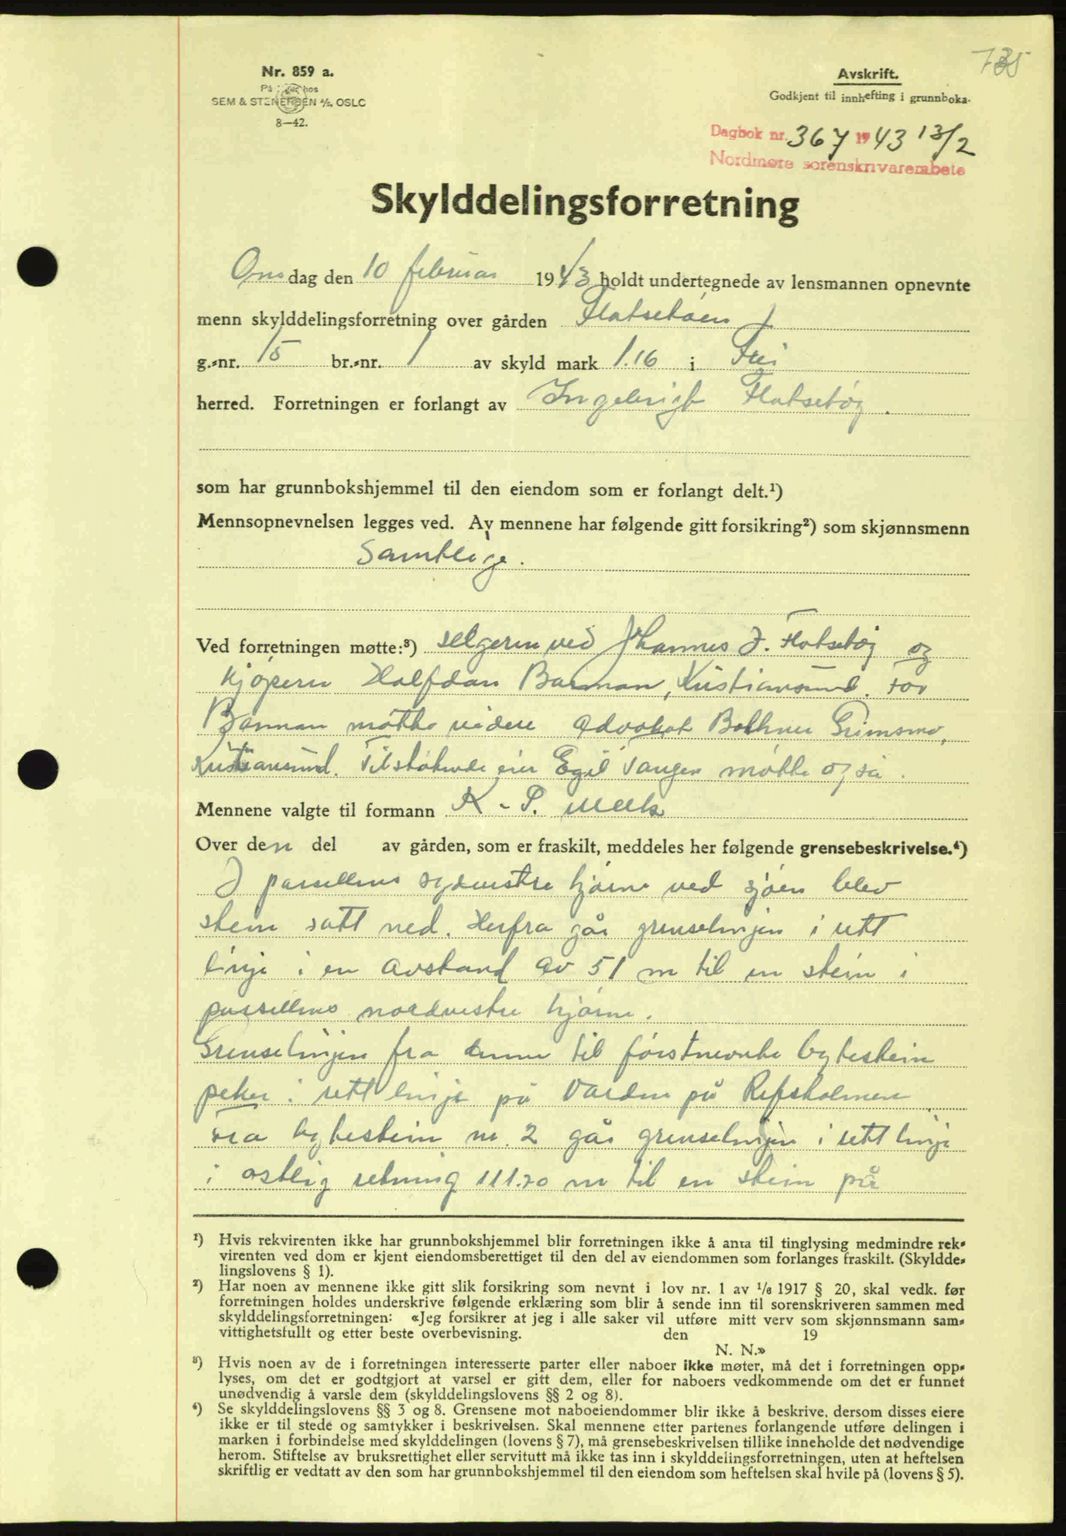 735
Nr. 859 a.
På lager hos
SEM & STENERSEN A/S, OSLO
8—42.
Avskrift.
Godkjent til innhefting i grunnboka.
Dagbok nr. 367 1943 13/2
Nordmøre sorenskrivarembete
Skylddelingsforretning
Onsdag den 10 februar 1943 holdt undertegnede av lensmannen opnevnte
menn skylddelingsforretning over gården Flatsetøen
g.-nr. 15 br.-nr. 1 av skyld mark 1.16 i Frei
herred. Forretningen er forlangt av Ingebrigt Flatsetøy.
som har grunnbokshjemmel til den eiendom som er forlangt delt.¹)
Mennsopnevnelsen legges ved. Av mennene har følgende gitt forsikring²) som skjønnsmenn
Samtlige.
Ved forretningen møtte:³) selgeren ved Johannes J. Flatsetøy og
kjøperen Halfdan Barman, Kristiansund. For
Barman møtte videre advokat Bothner Grimsmo,
Kristiansund. Tilstøtende eier Egil Vangen møtte også.
Mennene valgte til formann K. P. Meek
Over den del av gården, som er fraskilt, meddeles her følgende grensebeskrivelse.⁴)
I parsellens sydvestre hjørne ved sjøen blev
stein satt ned. Herfra går grenselinjen i rett
linje i en avstand av 51 m til en stein i
parsellens nordvestre hjørne.
Grenselinjen fra denne til førstnevnte bytestein
peker i rett linje på Varden på Refsholmen
Fra bytestein nr. 2 går grenselinjen i rett linje
i østlig retning 111.20 m til en stein på
¹) Hvis rekvirenten ikke har grunnbokshjemmel blir forretningen ikke å anta til tinglysing medmindre rek-
virenten ved dom er kjent eiendomsberettiget til den del av eiendommen som forlanges fraskilt. (Skyldde-
lingslovens § 1).
²) Har noen av mennene ikke gitt slik forsikring som nevnt i lov nr. 1 av 1/8 1917 § 20, skal vedk. før
forretningen holdes underskrive følgende erklæring som blir å sende inn til sorenskriveren sammen med
skylddelingsforretningen: «Jeg forsikrer at jeg i alle saker vil utføre mitt verv som skjønnsmann sam-
vittighetsfullt og etter beste overbevisning. den 19
N. N.»
³) Hvis noen av de i forretningen interesserte parter eller naboer ikke møter, må det i forretningen opp-
lyses, om det er godtgjort at varsel er gitt dem, eller for naboers vedkommende om det er funnet
unødvendig å varsle dem (skylddelingslovens §§ 2 og 8).
⁴) Se skylddelingslovens §§ 3 og 8. Grensene mot naboeiendommer blir ikke å beskrive, dersom disses eiere
ikke er til stede og samtykker i beskrivelsen. Skal mennene etter partenes forlangende utføre delingen i
marken i forbindelse med skylddelingen (lovens § 7), må grensebeskrivelsen tillike inneholde det nødvendige
herom. Stiftelse av bruksrettighet eller servitutt må ikke tas inn i skylddelingsforretningen, uten at heftelsen
skriftlig er vedtatt av den som har grunnbokshjemmel til den eiendom som heftelsen skal hvile på (lovens § 5).